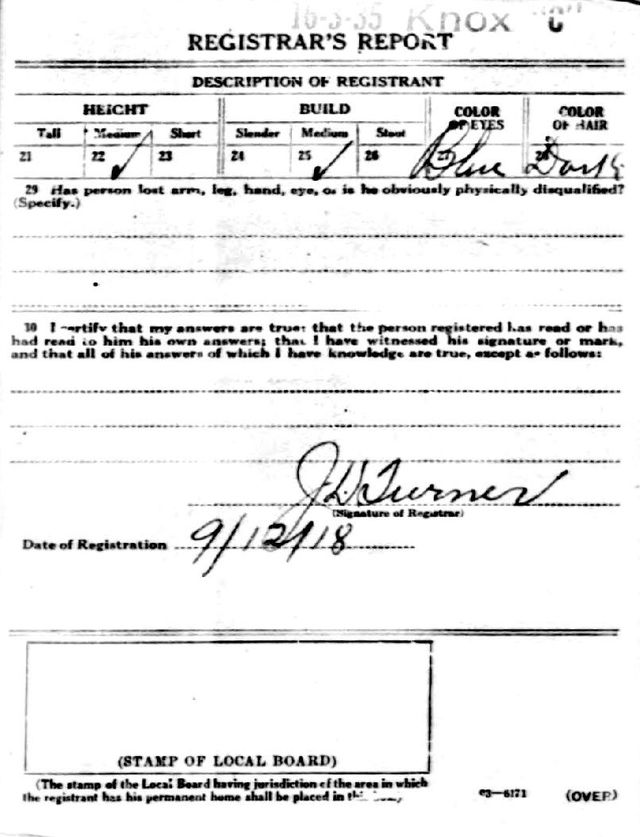 16-3-35 Knox "C"
REGISTRAR'S REPORT
DESCRIPTION OF REGISTRANT
HEIGHT BUILD COLOR OF EYES COLOR OF HAIR
Tall Medium Short Slender Medium Stout
21 22 ✓ 23 24 25 ✓ 26 27 Blue 28 Dark
29 Has person lost arm, leg, hand, eye, or is he obviously physically disqualified?
(Specify.)
30 I certify that my answers are true; that the person registered has read or has
had read to him his own answers; that I have witnessed his signature or mark,
and that all of his answers of which I have knowledge are true, except as follows:
J D Turner
(Signature of Registrar)
Date of Registration 9/12/18
(STAMP OF LOCAL BOARD)
(The stamp of the Local Board having jurisdiction of the area in which
the registrant has his permanent home shall be placed in
03—6171 (OVER)